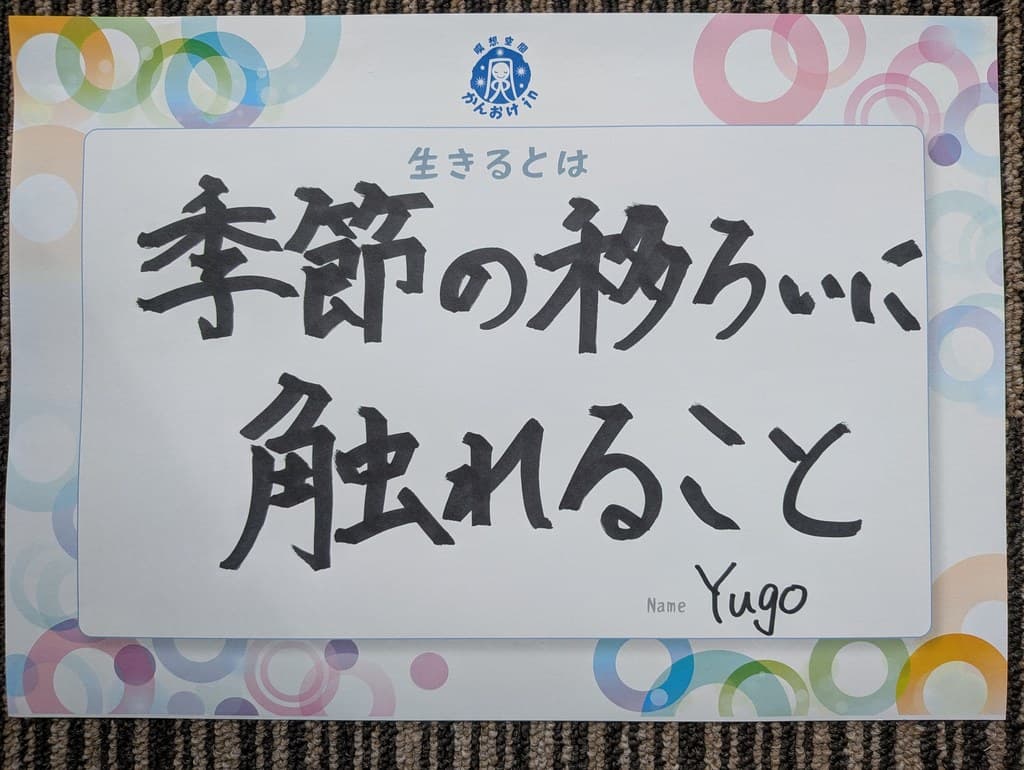 瞑想空間
かんおけin
生きるとは
季節の移ろいに
触れること
Name Yugo